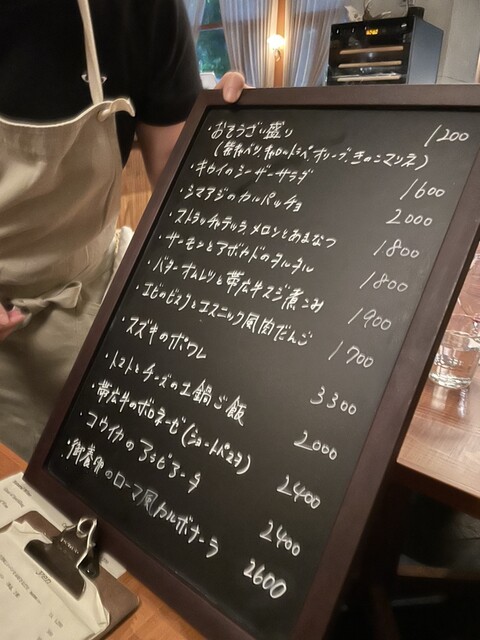 ・おそうざい盛り 1200
(紫キャベツ、キャロットラペ、オリーブ、きのこマリネ)
・キウイのシーザーサラダ 1600
・シマアジのカルパッチョ 2000
・ストラッチャテッラ、メロンとあまなつ 1800
・サーモンとアボカドのタルタル 1800
・バターオムレツと帯広牛スジ煮こみ 1900
・エビのビスクとエスニック風肉だんご 1700
・スズキのポワレ 3300
・トマトとチーズの土鍋ご飯 2000
・帯広牛のボロネーゼ(ショートパスタ) 2400
・コウイカのアラビアータ 2400
・御養卵のローマ風カルボナーラ 2600